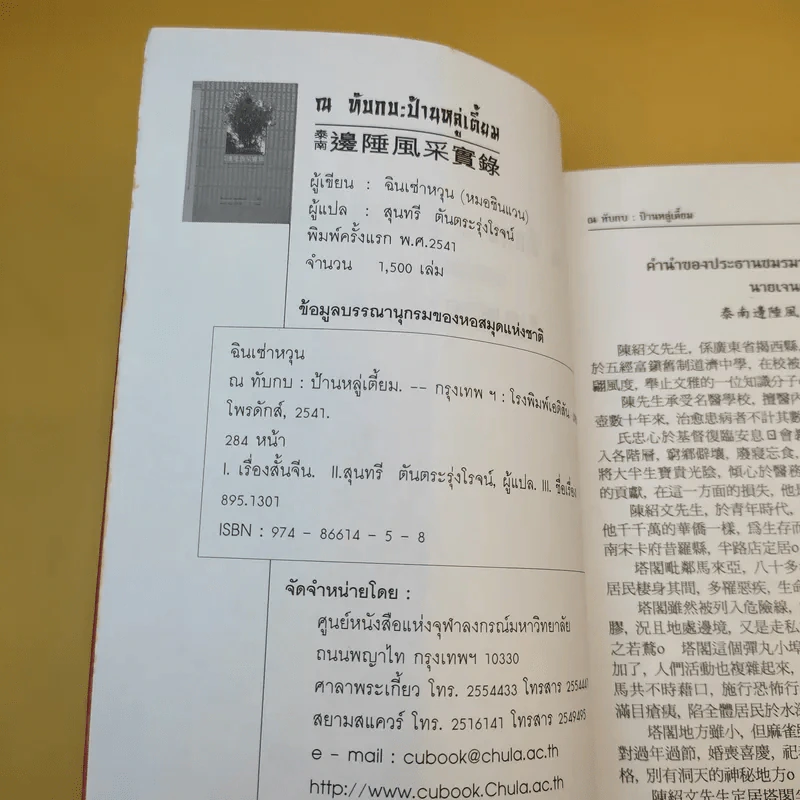 ณ ทับกบ:ป้านหลู่เตี้ยม
泰南邊陲風采實錄
ผู้เขียน : ฉินเซ่าหวุน (หมอชินแวน)
ผู้แปล : สุนทรี ตันตระรุ่งโรจน์
พิมพ์ครั้งแรก พ.ศ.2541
จำนวน 1,500 เล่ม
ข้อมูลบรรณานุกรมของหอสมุดแห่งชาติ
ฉินเซ่าหวุน
ณ ทับกบ : ป้านหลู่เตี้ยม. -- กรุงเทพ ฯ : โรงพิมพ์เอดิสัน
โพรดักส์, 2541.
284 หน้า
I. เรื่องสั้นจีน. II.สุนทรี ตันตระรุ่งโรจน์, ผู้แปล. III. ชื่อเรื่อง
895.1301
ISBN : 974 - 86614 - 5 - 8
จัดจำหน่ายโดย :
ศูนย์หนังสือแห่งจุฬาลงกรณ์มหาวิทยาลัย
ถนนพญาไท กรุงเทพฯ 10330
ศาลาพระเกี้ยว โทร. 2554433 โทรสาร 2554441
สยามสแควร์ โทร. 2516141 โทรสาร 2549495
e - mail : cubook@chula.ac.th
http://www.cubook.Chula.ac.th
ณ ทับกบ : ป้านหลู่เตี้ยม
คำนำของประธานชมรม
นายเจน
泰南邊陸風
陳紹文先生, 係廣東省揭西縣
於五經富鎭舊制道濟中學, 在校被
翩風度, 舉止文雅的一位知識分子
陳先生承受名醫學校, 擅醫內
壺數十年來, 治愈患病者不計其數
氏忠心於基督復臨安息日會
入各階層, 窮鄉僻壤, 廢寢忘食,
將大半生寶貴光陰, 傾心於醫務
的貢獻, 在這一方面的損失, 他是
陳紹文先生, 於青年時代,
他千千萬的華僑一樣, 爲生存而
南宋卡府昔羅縣, 半路店定居o
塔閣毗鄰馬來亞, 八十多
居民棲身其間, 多罹惡疾, 生命
塔閣雖然被列入危險線,
膠, 況且地處邊境, 又是走私
之若鶩o 塔閣這個彈丸小埠
加了, 人們活動也複雜起來,
馬共不時藉口, 施行恐怖行
滿目瘡痍, 陷全體居民於水深
塔閣地方雖小, 但麻雀
對過年過節, 婚喪喜慶, 祀
格, 別有洞天的神秘地方o
陳紹文先生定居塔閣